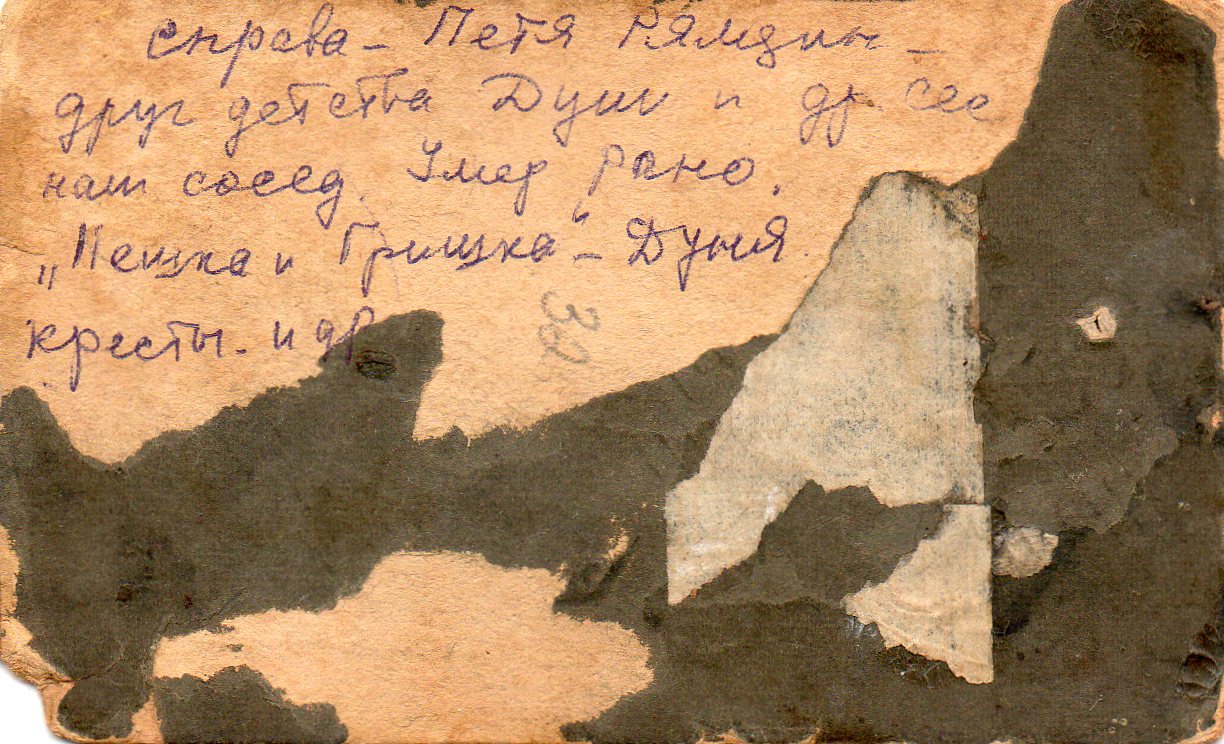 справа - Петя Рямзин -
друг детства Души и др сес
наш сосед. Умер рано.
„Пешка и Гришка“ - Дуня
кресты. и др
30